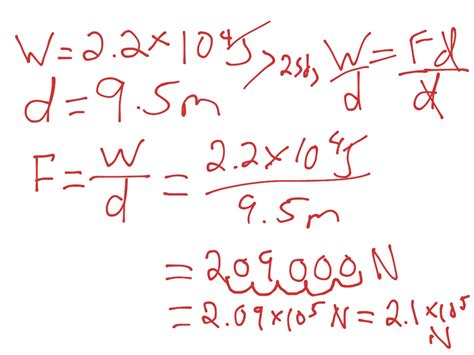 W = 2.2 × 10⁴ J > 2sd, W/d = Fd/d
d = 9.5m
F = W/d = 2.2 × 10⁴ J / 9.5m
= 209000 N
= 2.09 × 10⁵ N = 2.1 × 10⁵ N